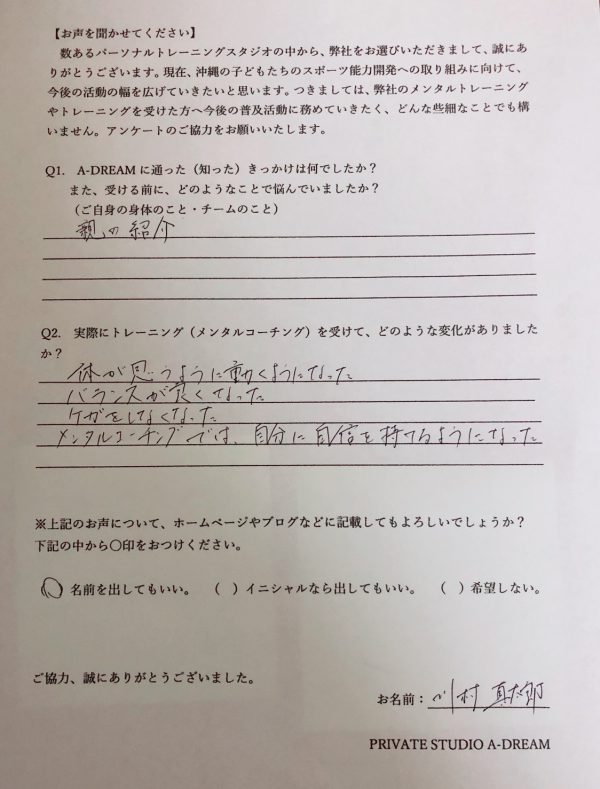 【お声を聞かせてください】
数あるパーソナルトレーニングスタジオの中から、弊社をお選びいただきまして、誠にあ
りがとうございます。現在、沖縄の子どもたちのスポーツ能力開発への取り組みに向けて、
今後の活動の幅を広げていきたいと思います。つきましては、弊社のメンタルトレーニング
やトレーニングを受けた方へ今後の普及活動に務めていきたく、どんな些細なことでも構
いません。アンケートのご協力をお願いいたします。
Q1. A-DREAMに通った（知った）きっかけは何でしたか？
また、受ける前に、どのようなことで悩んでいましたか？
（ご自身の身体のこと・チームのこと）
親の紹介
Q2. 実際にトレーニング（メンタルコーチング）を受けて、どのような変化がありました
か？
体が思うように動くようになった
バランスが良くなった
ケガをしなくなった
メンタルコーチングでは、自分に自信を持てるようになった
※上記のお声について、ホームページやブログなどに記載してもよろしいでしょうか？
下記の中から〇印をおつけください。
(〇) 名前を出してもいい。 ( ) イニシャルなら出してもいい。 ( ) 希望しない。
ご協力、誠にありがとうございました。
お名前：川村 真太郎
PRIVATE STUDIO A-DREAM